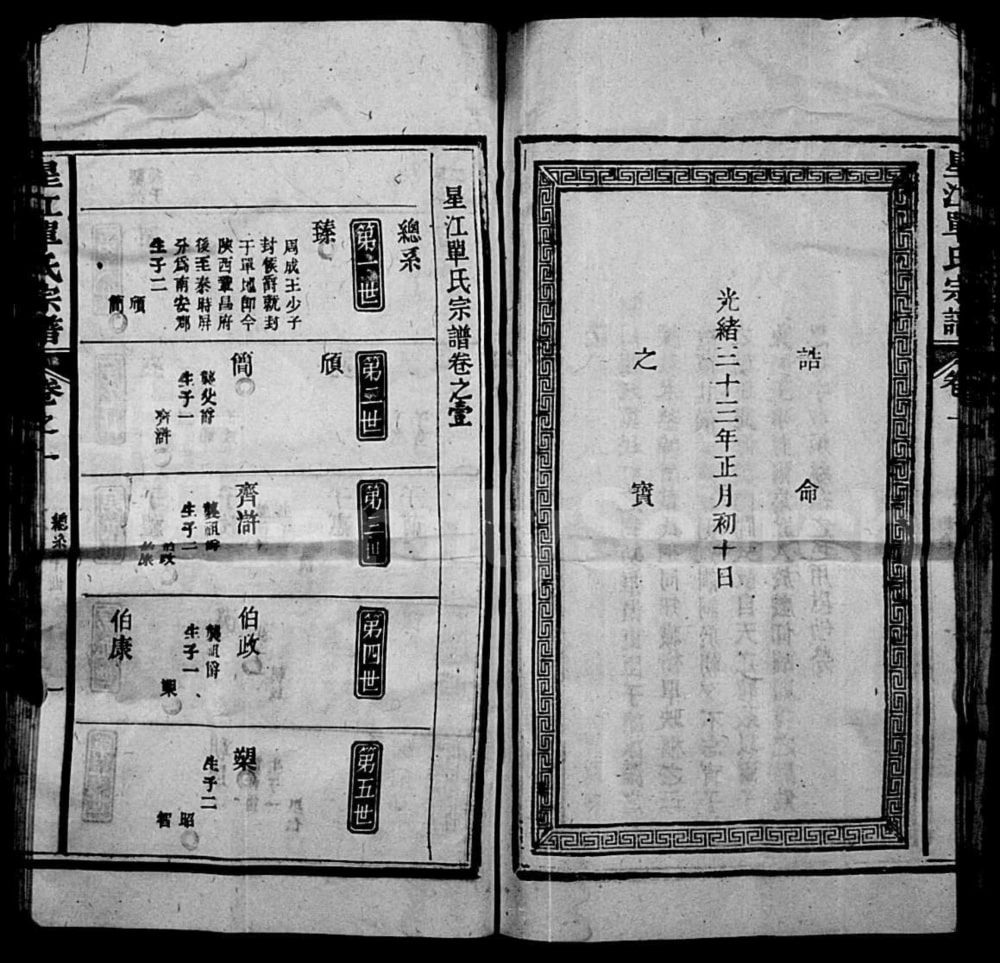 星江單氏宗譜
卷一
誥命
光緒三十三年正月初十日
之寶
星江單氏宗譜卷之壹
總系
第一世
臻
周成王少子
封侯爵就封
于單地即今
陝西鞏昌府
後至秦時屏
分為南安郡
生子二
頎
簡
第二世
頎
簡
襲父爵
生子一
齊滸
第三世
齊滸
襲祖爵
生子二
伯政
伯康
第四世
伯政
襲祖爵
生子一
伯康
第五世
生子二
昭
智
星江單氏宗譜
卷之一
總系
一